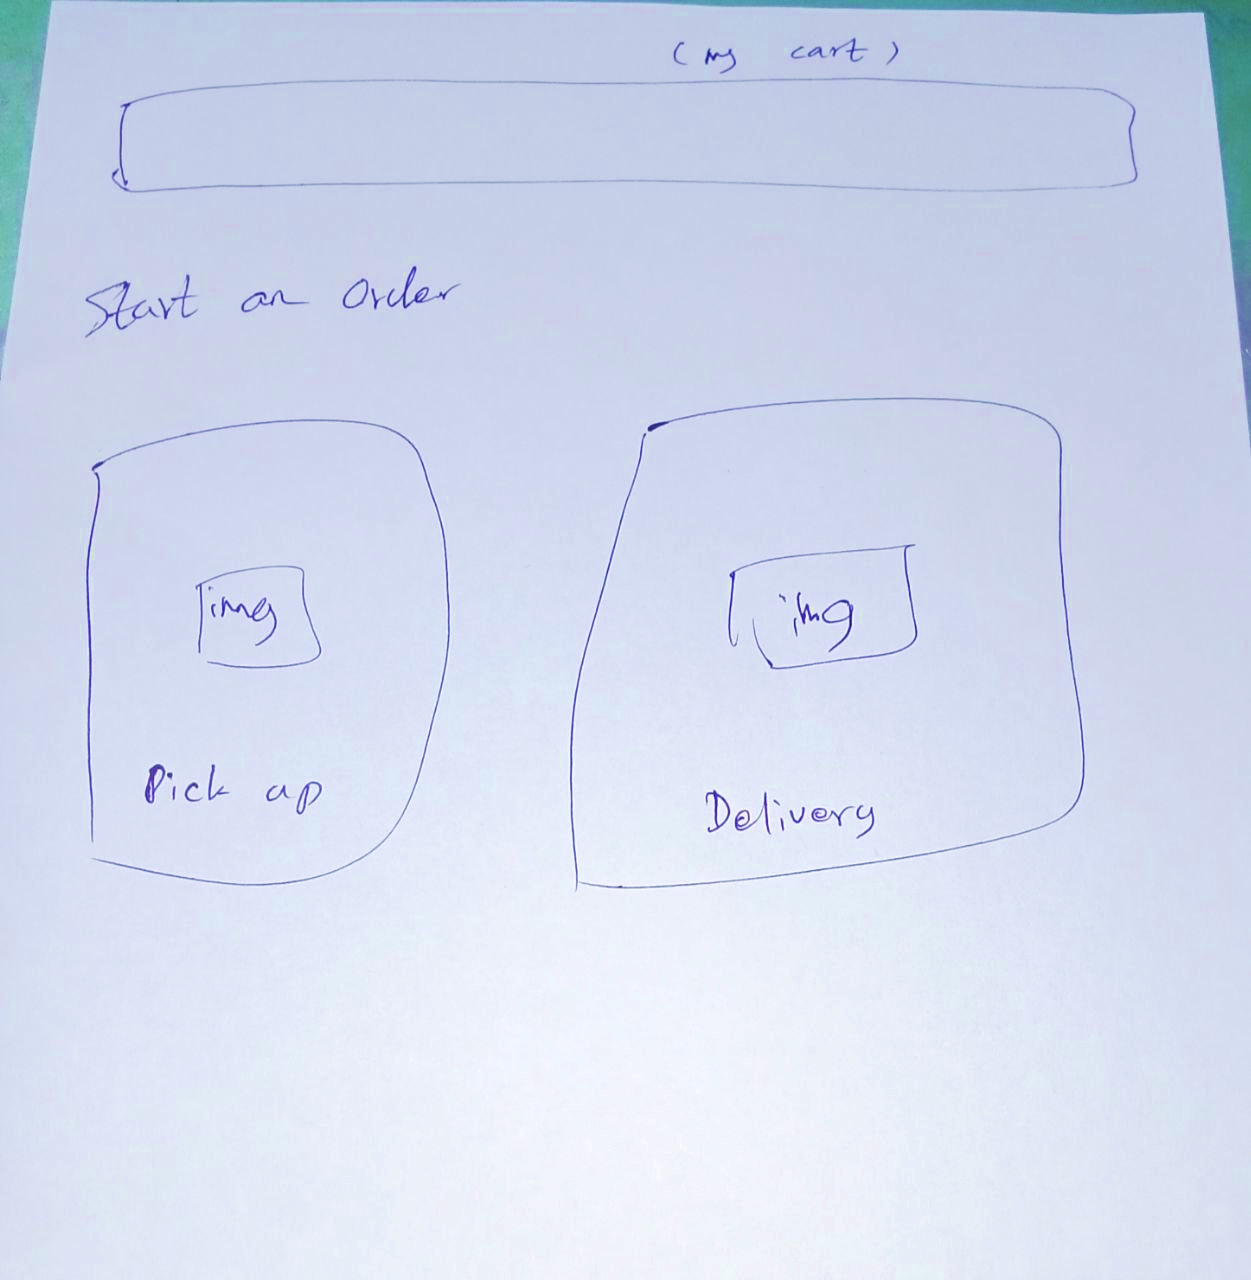 (my cart)
Start an Order
img
img
Pick up
Delivery